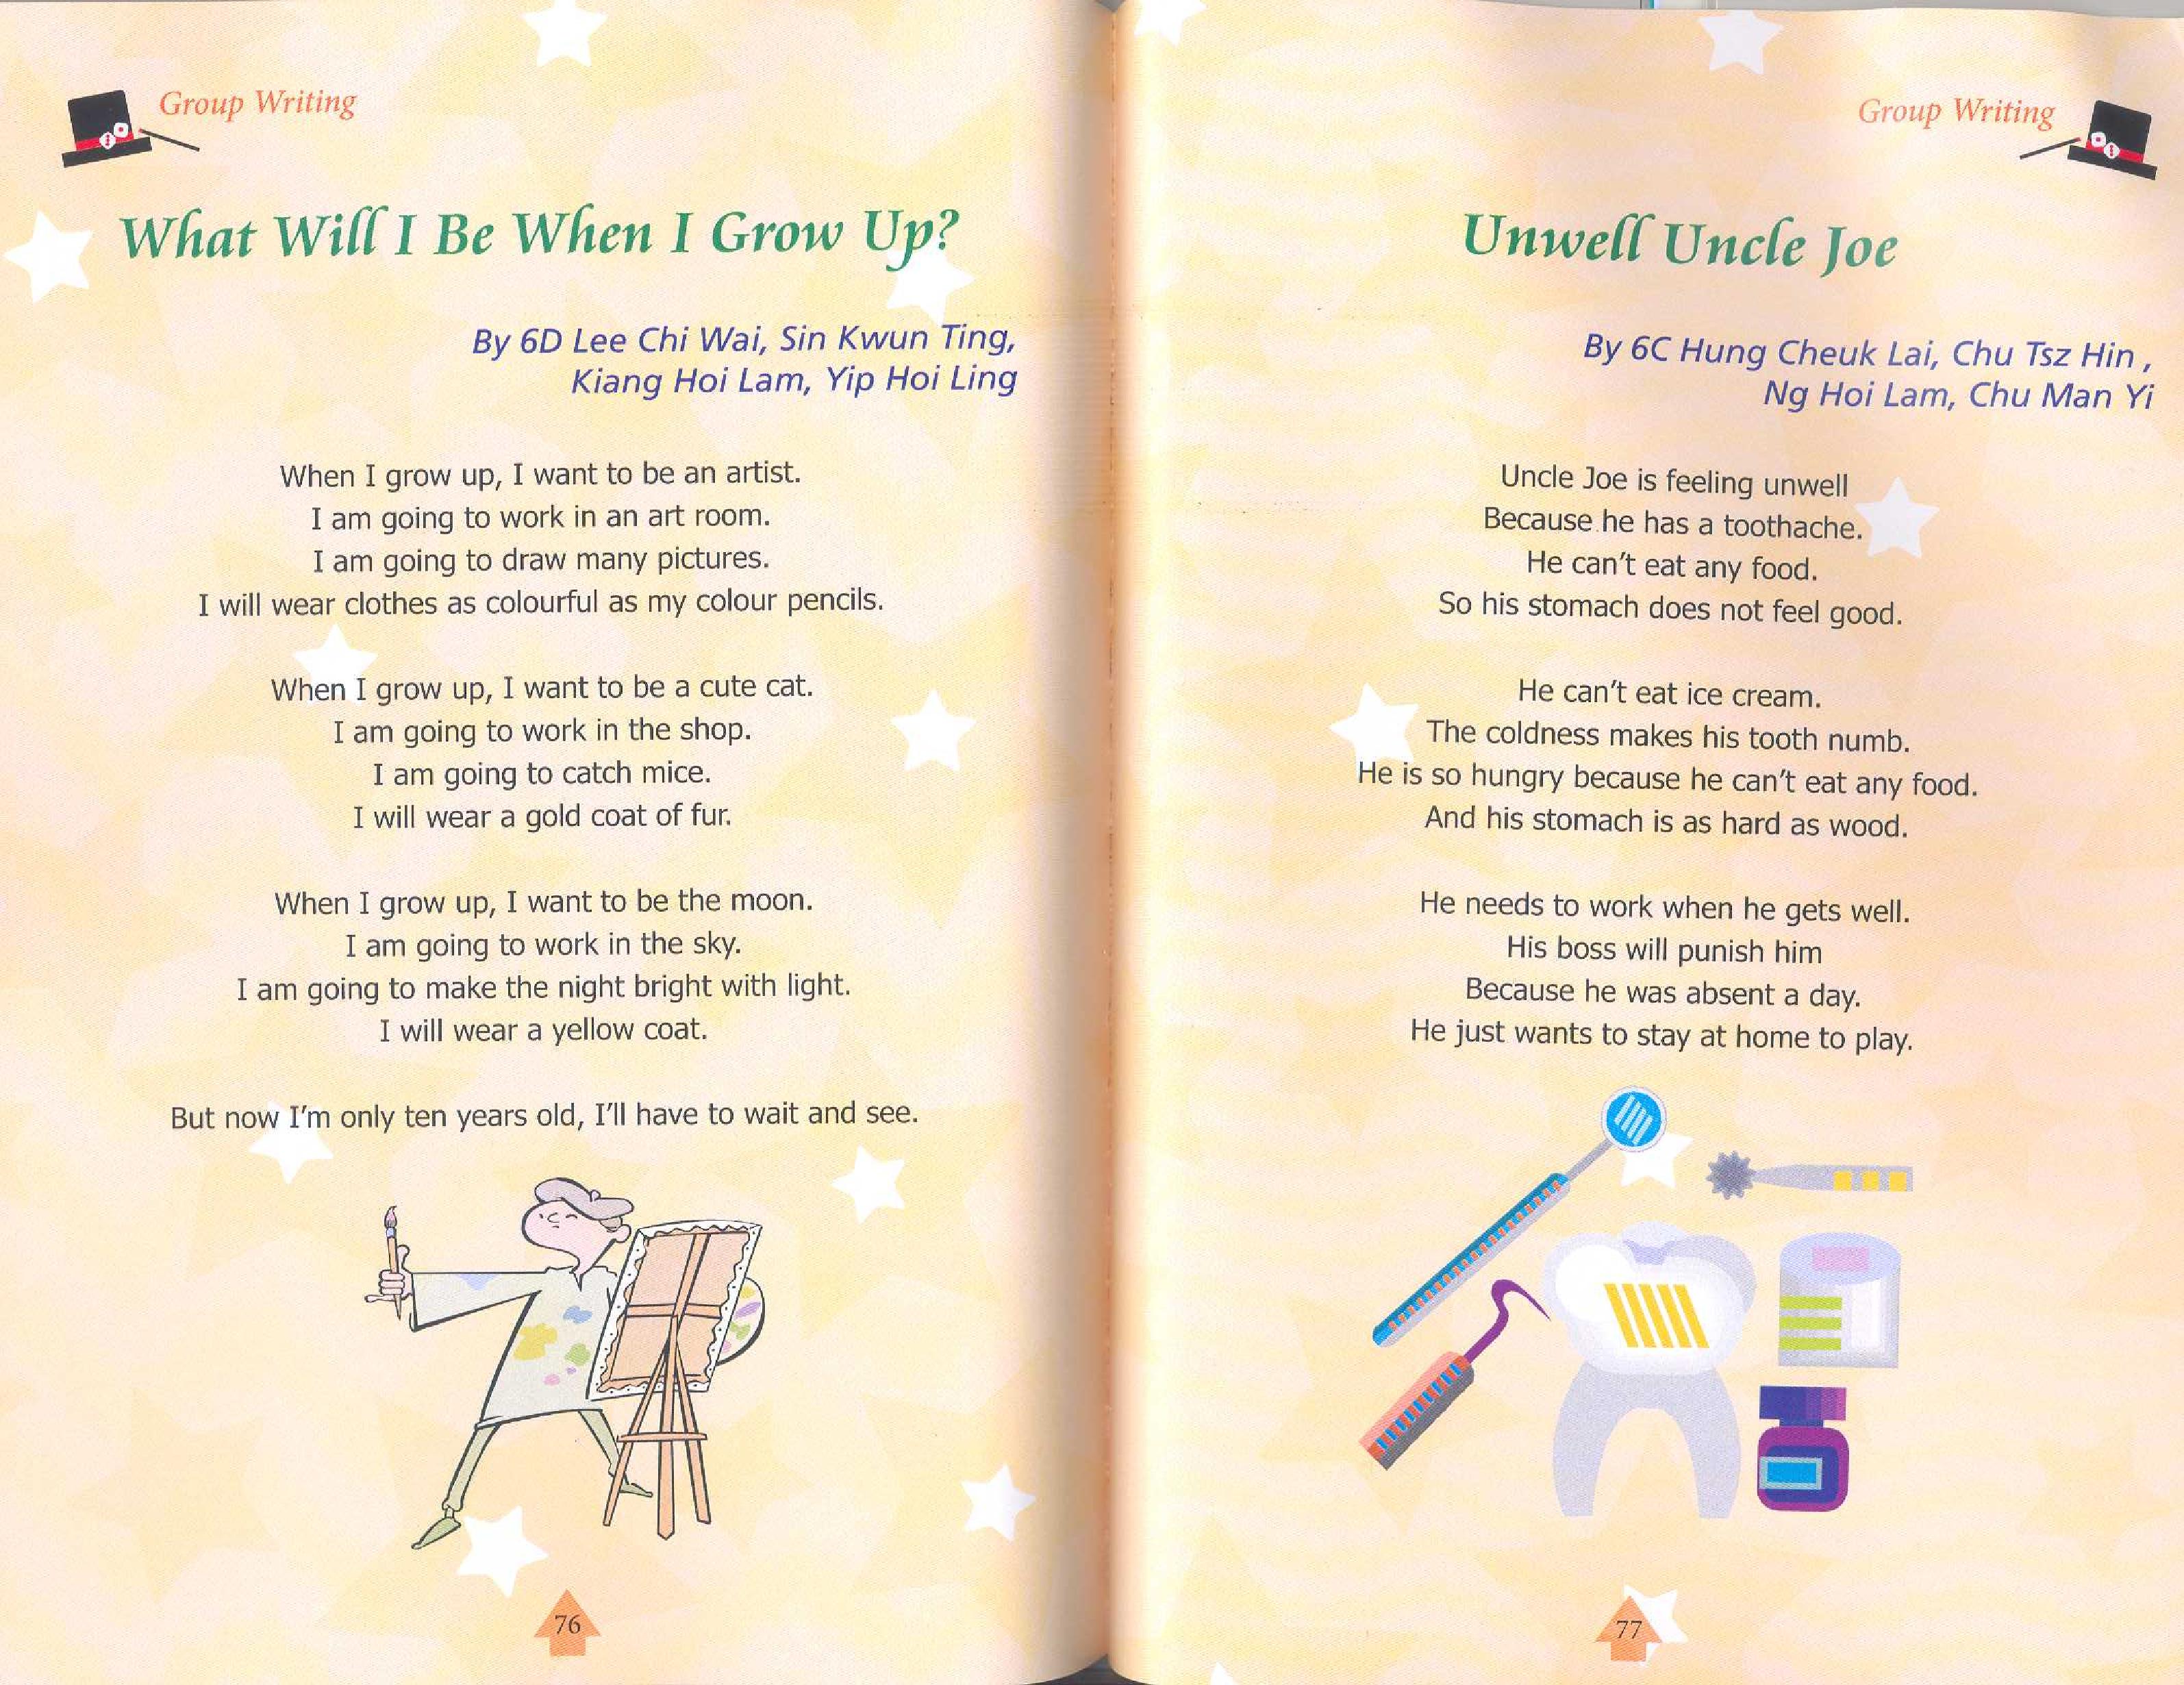 Group Writing
What Will I Be When I Grow Up?
By 6D Lee Chi Wai, Sin Kwun Ting,
Kiang Hoi Lam, Yip Hoi Ling
When I grow up, I want to be an artist.
I am going to work in an art room.
I am going to draw many pictures.
I will wear clothes as colourful as my colour pencils.
When I grow up, I want to be a cute cat.
I am going to work in the shop.
I am going to catch mice.
I will wear a gold coat of fur.
When I grow up, I want to be the moon.
I am going to work in the sky.
I am going to make the night bright with light.
I will wear a yellow coat.
But now I'm only ten years old, I'll have to wait and see.
76
Group Writing
Unwell Uncle Joe
By 6C Hung Cheuk Lai, Chu Tsz Hin ,
Ng Hoi Lam, Chu Man Yi
Uncle Joe is feeling unwell
Because he has a toothache.
He can't eat any food.
So his stomach does not feel good.
He can't eat ice cream.
The coldness makes his tooth numb.
He is so hungry because he can't eat any food.
And his stomach is as hard as wood.
He needs to work when he gets well.
His boss will punish him
Because he was absent a day.
He just wants to stay at home to play.
77